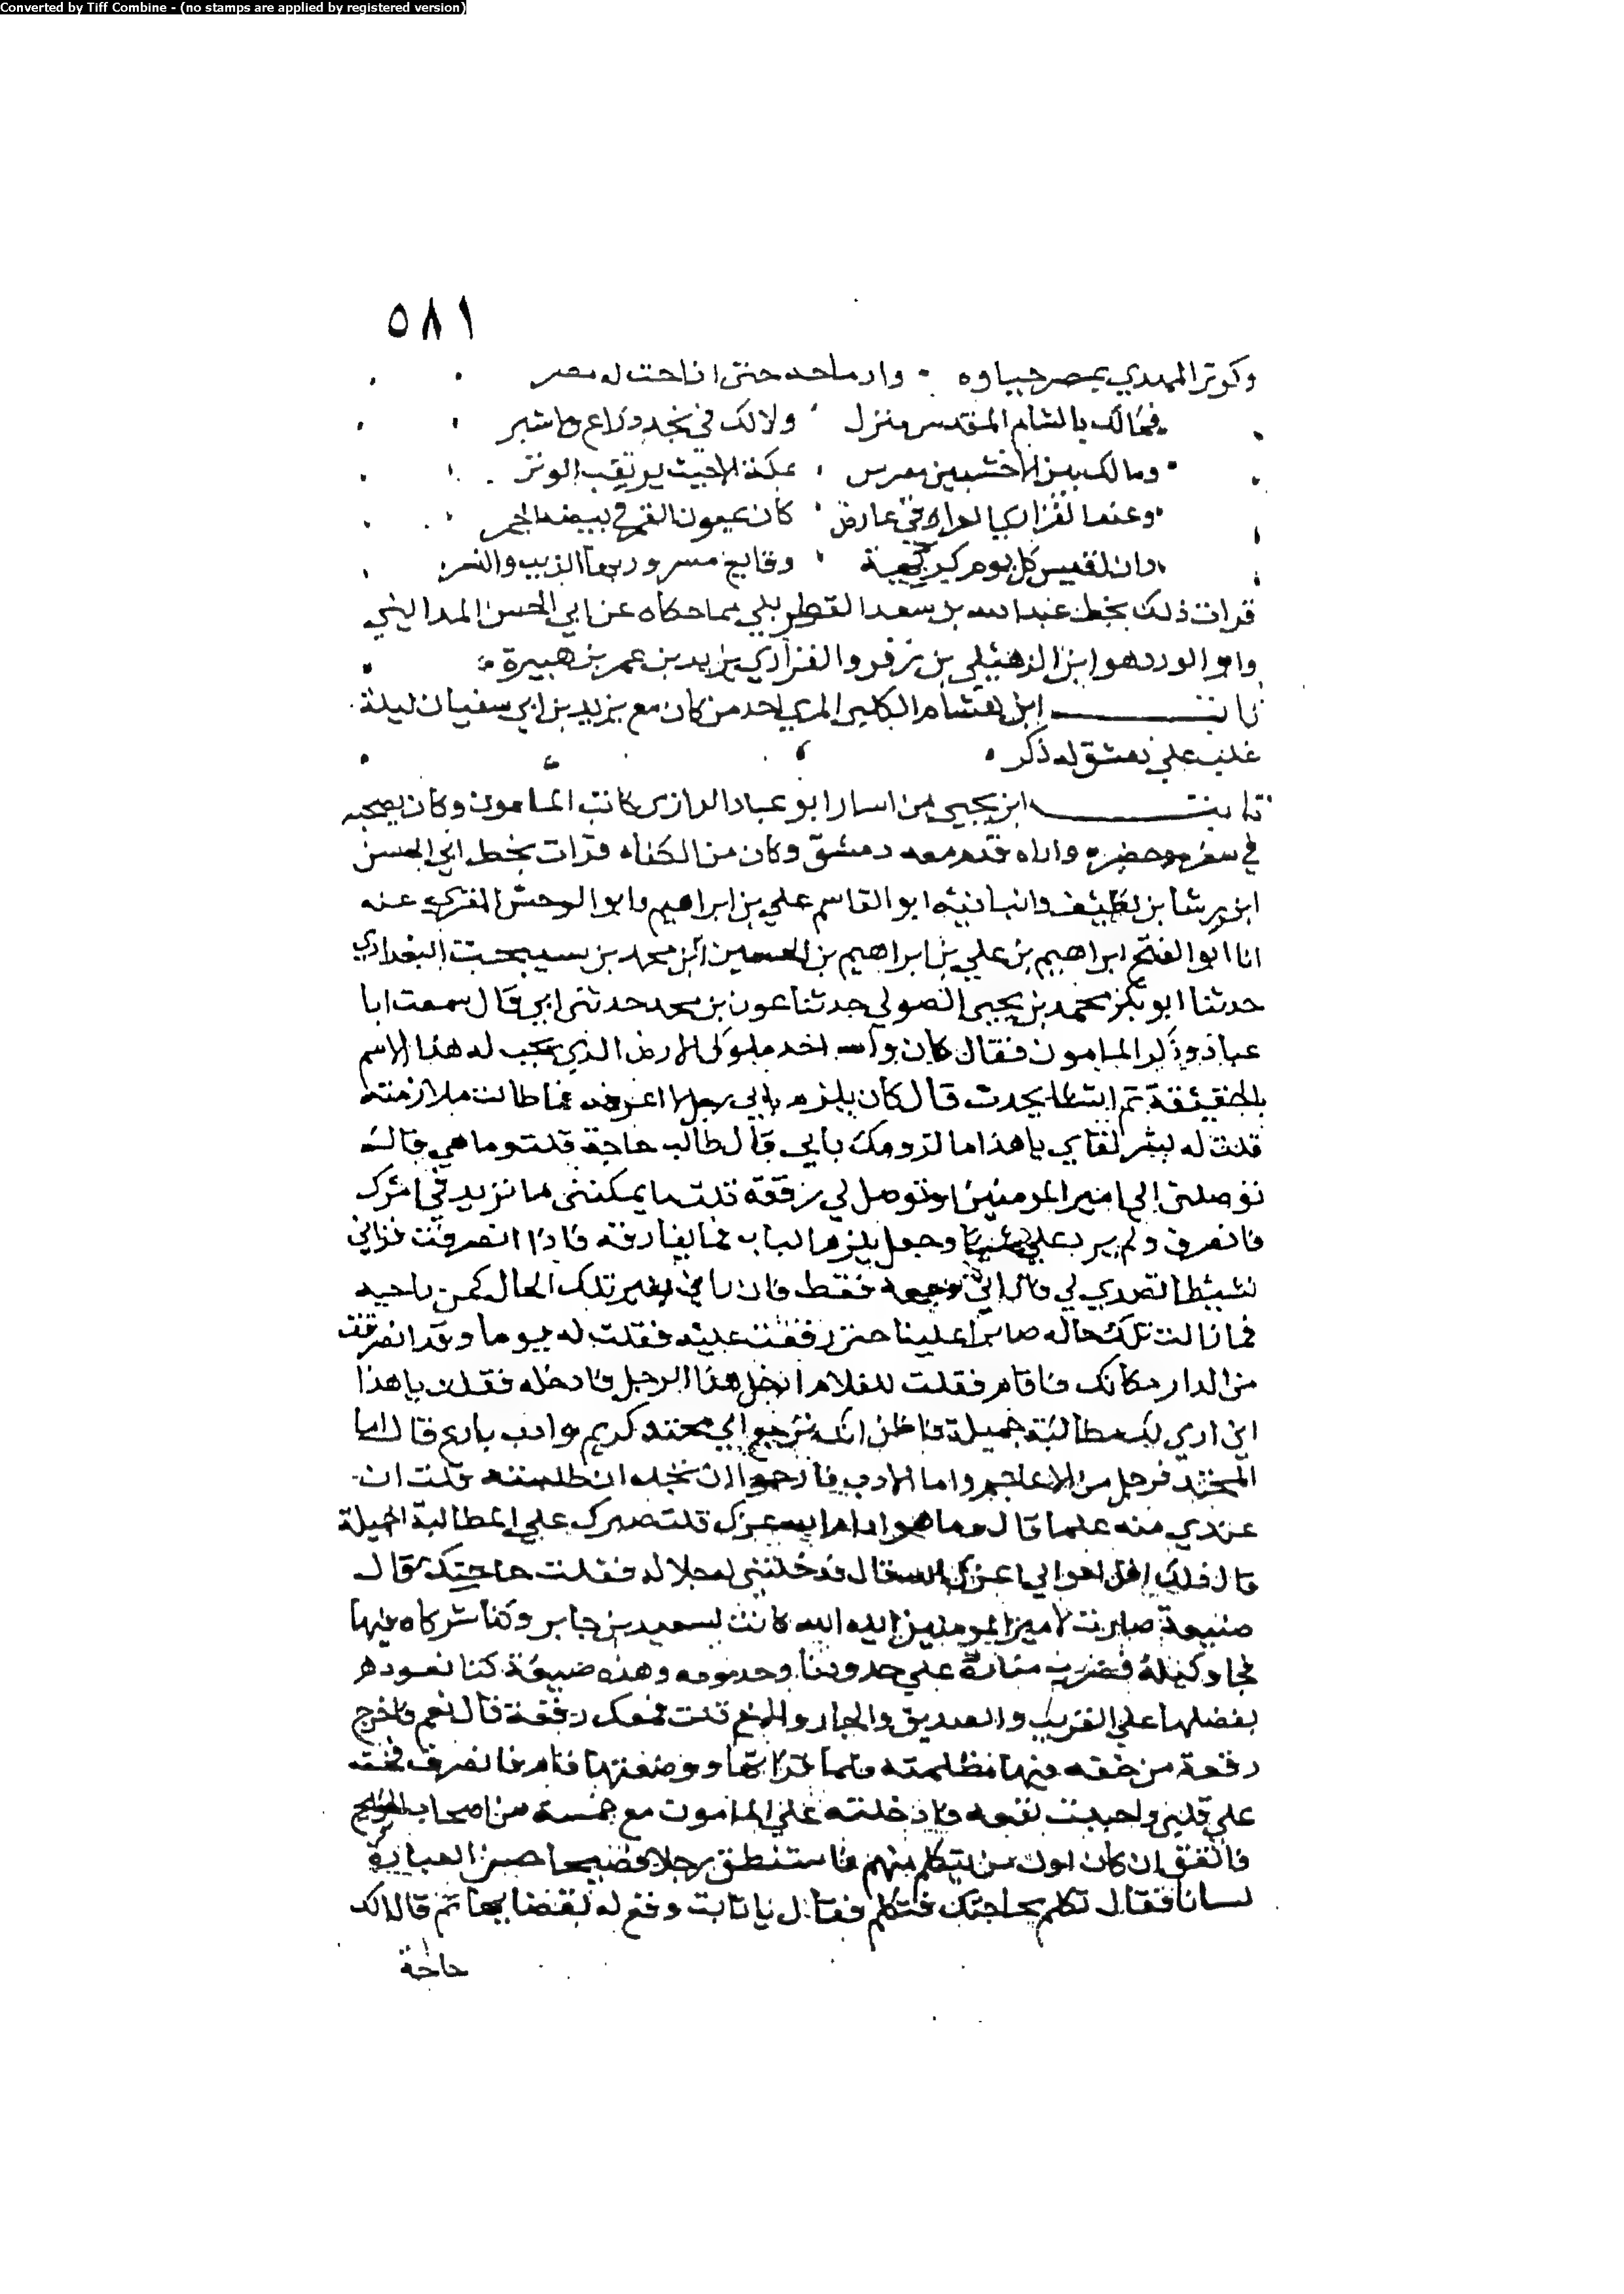 Converted by Tiff Combine - (no stamps are applied by registered version)
٥٨١
وكوثر المهدي بمصر جياوه وار ماحد حتى اناحت له مصر
فمالك بالشام المقدس منزل ولا لك في نجد ذراع ولا شبر
ومالك بين الاخشبين معرس بمكة الا حيث يرتقب الوتر
وعند الفزاري العراقي عارض كان عيون القوم في بيضه الجمر
وان لقيس كل يوم كريهية وقايع مسرور بها الذيب والنسر
قرات ذلك بخط عبد الله بن سعد القطربلي مما حكاه عن ابي الحسن المدايني
وابو الورد هو ابن الذهيلي بن زفر والفزاري يزيد بن عمر بن هبيرة
ثابت ابن هشام الكلبي المري احد من كان مع يزيد بن ابي سفيان ليلة
غلب على دمشق له ذكر
ثابت ابن يحيى بن اسار ابو عباد الرازي كاتب المامون وكان يصحبه
في سفره وحضره واراه قدم معه دمشق وكان من الكفاه قرات بخط ابي الحسن
ابن رشا بن نظيف وانبانيه ابو القاسم علي بن ابراهيم وابو الوحش المقري عنه
انا ابو الفتح ابراهيم بن علي بن ابراهيم بن الحسين بن محمد بن سيبخت البغدادي
حدثنا ابو بكر محمد بن يحيى الصولي حدثنا عون بن محمد حدثني ابي قال سمعت ابا
عباد وذكر المامون فقال كان والله احد ملوك الارض الذي يجب له هذا الاسم
بالحقيقة ثم انشا يحدث قال كان يلزم بابي رجلا اعرفه فما طالت ملازمته
قلت له لبشر لقاي يا هذا ما لزومك بابي قال طالب حاجة قلت وما هي قال
توصلني الى امير المومنين او توصل لي رقعة قلت ما يمكنني ما تريد في امرك
فانصرف ولم يرد علي شيئا وجعل يلزم الباب فما يفارقه فاذا انصرفت فراني
نشيطا تصدى لي فاراني وجهه فقط فان راني بغير تلك الحال كمن ناحية
فما زالت تلك حاله صابرا علينا حتى رفقت عليه فقلت له يوما وقد انصرفت
من الدار مكانك فاقام فقلت للغلام ادخل هذا الرجل فادخله فقلت يا هذا
اني ارى لك مطالبة جميلة فاظن انك ترجع الى محتد كريم وادب بارع قال اما
المحتد فرجل من الاعاجم واما الادب فارجوا ان تجده ان طلبته قلت ان
عندي منه علما قال وما هو قلت صبرك على المطالبة الجميلة
قال فدخلتني له جلاله فقلت حاجتك قال
ضيعة صارت لامير المومنين ايده الله كانت لسعيد بن جابر وكنا شركاه فيها
فجا وكيله فضرب منارة على حدودنا وحدوده وهذه ضيعة كنا نعود
بفضلها على القريب والصديق والجار والاخ قلت فمعك رقعة قال نعم فاخرج
رقعة من خفه فيها مظلمته فلما قراتها ووضعتها قام فانصرف فخف
على قلبي واحببت نفعه فادخلته على المامون مع خمسة من اصحاب الحوايج
فاتفق ان كان اول من يتكلم منهم فاستنطق رجلا فصيحا حسن العبارة
لسانا فقال تكلم بحاجتك فتكلم فقال يا ثابت وقع له بقضايها ثم قال الك
حاجة